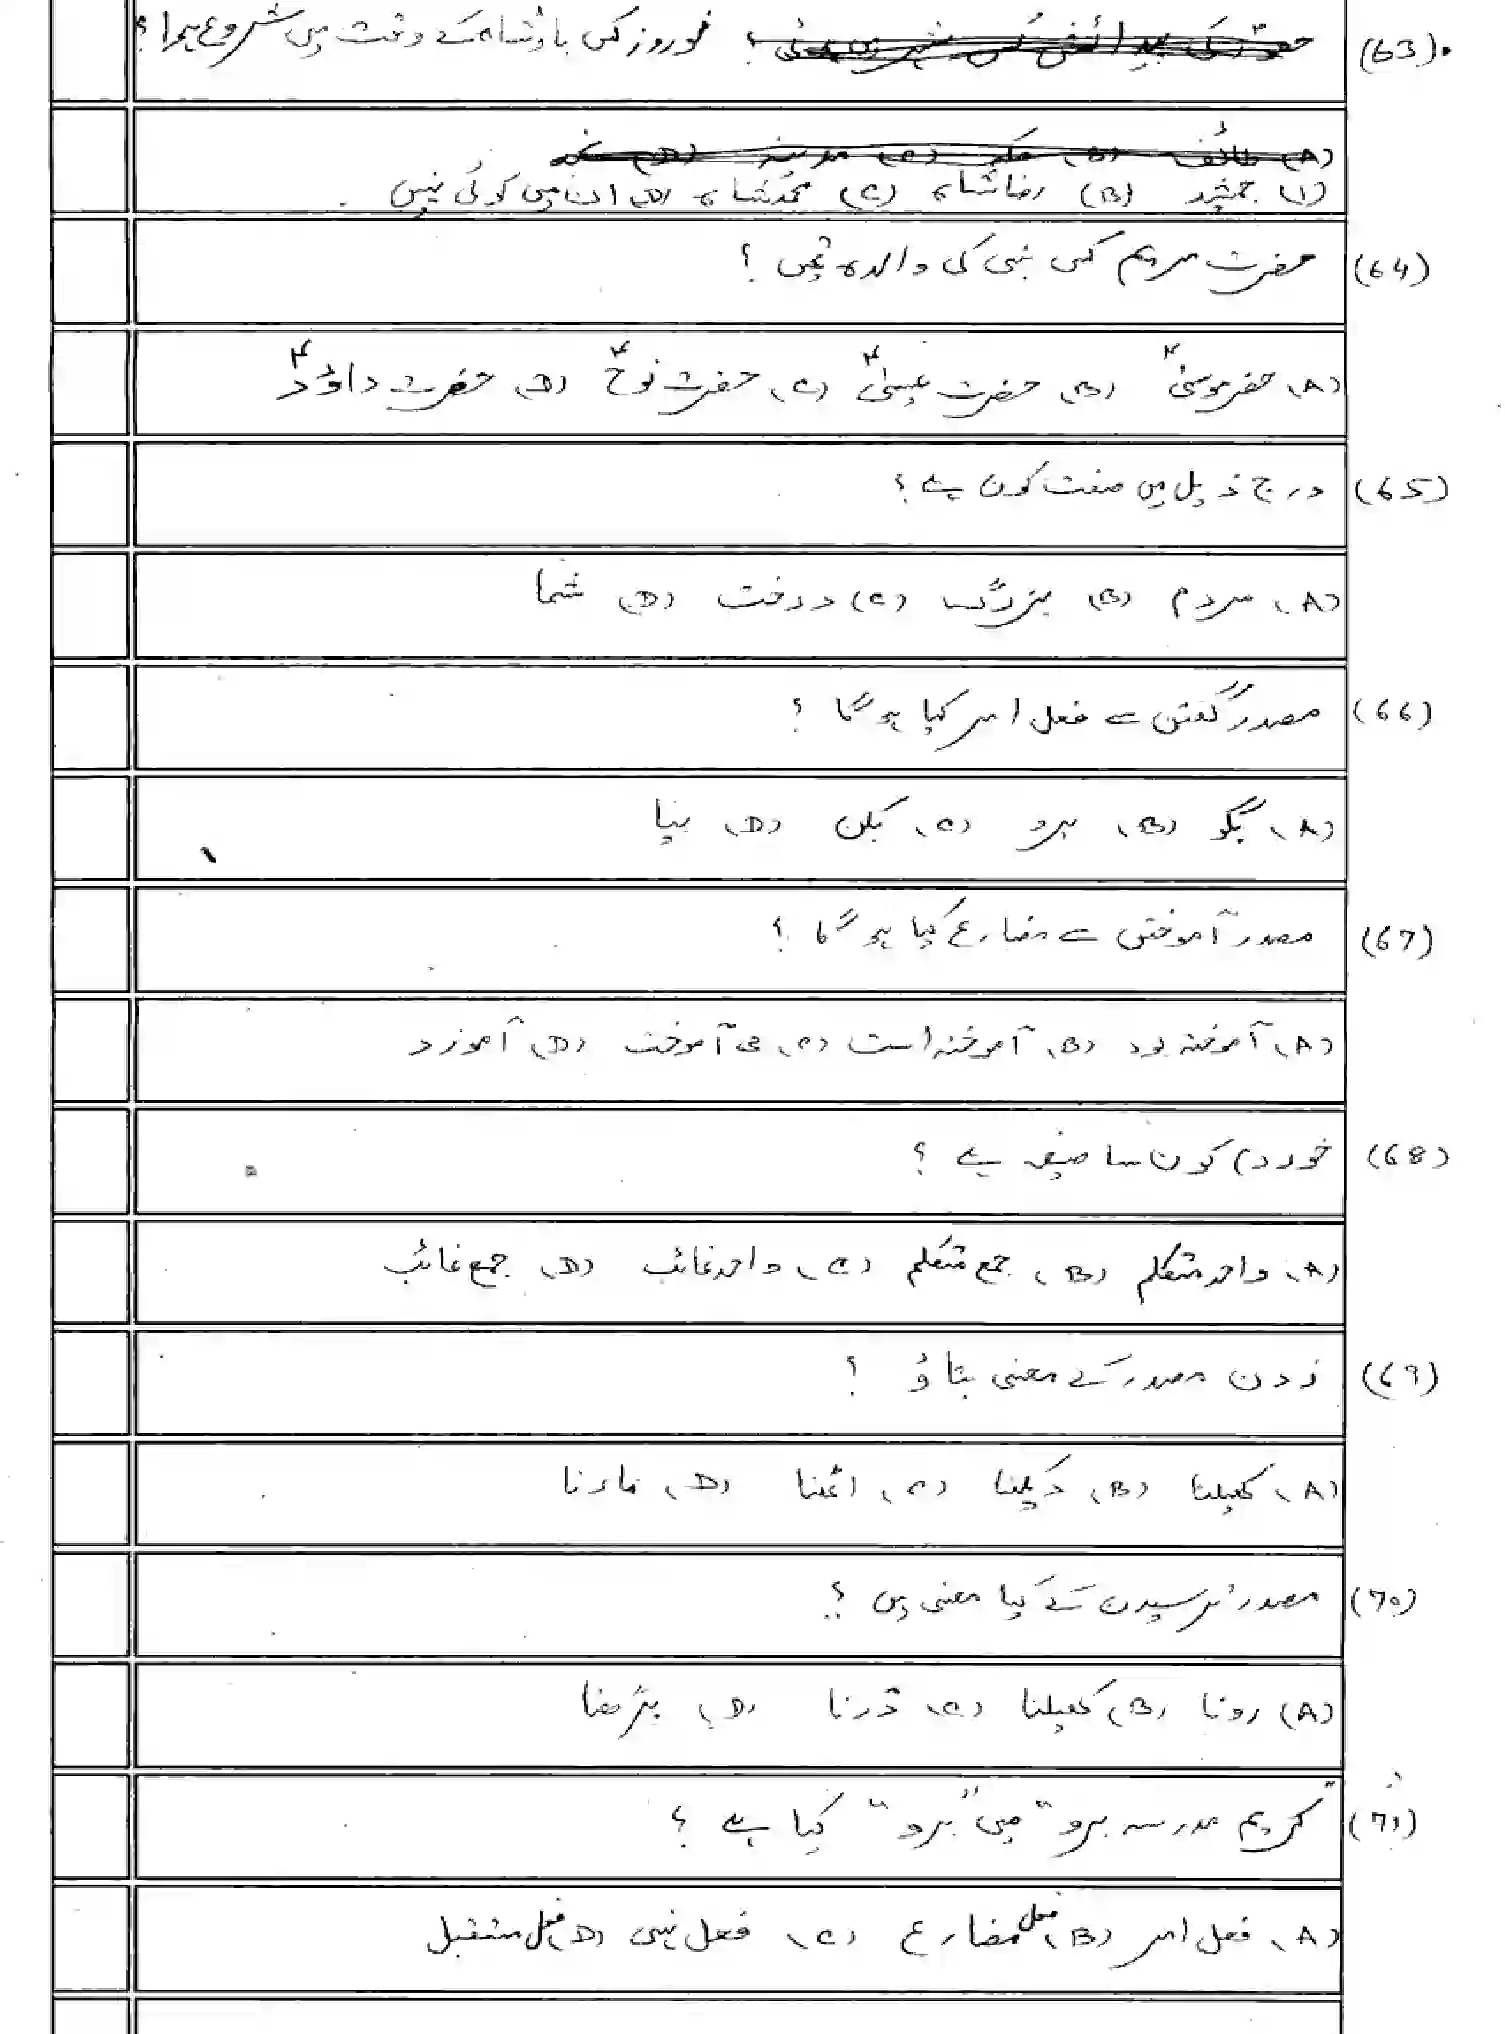 (63) نوروز کس بادشاہ کے وقت میں شروع ہوا؟
(A) طائف (B) مکہ (C) مدینہ (D)
(A) جمشید (B) رضا شاہ (C) محمد شاہ (D) ان میں کوئی نہیں
(64) حضرت مریم کس نبی کی والدہ تھیں ؟
(A) حضرموسیٰؑ (B) حضرت عیسیٰؑ (C) حضرت نوحؑ (D) حضرت داؤدؑ
(65) درج ذیل میں صفت کون ہے؟
(A) مردم (B) بزرگ (C) درخت (D) شما
(66) مصدر گفتن سے فعل امر کیا ہوگا ؟
(A) بگو (B) برو (C) بکن (D) بیا
(67) مصدر آموختن سے مضارع کیا ہوگا ؟
(A) آموختہ بود (B) آموختہ است (C) می آموخت (D) آموزد
(68) خوردم کون سا صیغہ ہے ؟
(A) واحد متکلم (B) جمع متکلم (C) واحد غائب (D) جمع غائب
(69) زدن مصدر کے معنی بتاؤ ؟
(A) کھیلنا (B) دیکھنا (C) اٹھنا (D) مارنا
(70) مصدر ترسیدن کے کیا معنی ہیں ؟
(A) رونا (B) کھیلنا (C) ڈرنا (D) پڑھنا
(71) "کریم مدرسہ برو" میں "برو" کیا ہے ؟
(A) فعل امر (B) فعل مضارع (C) فعل نہی (D) فعل مستقبل